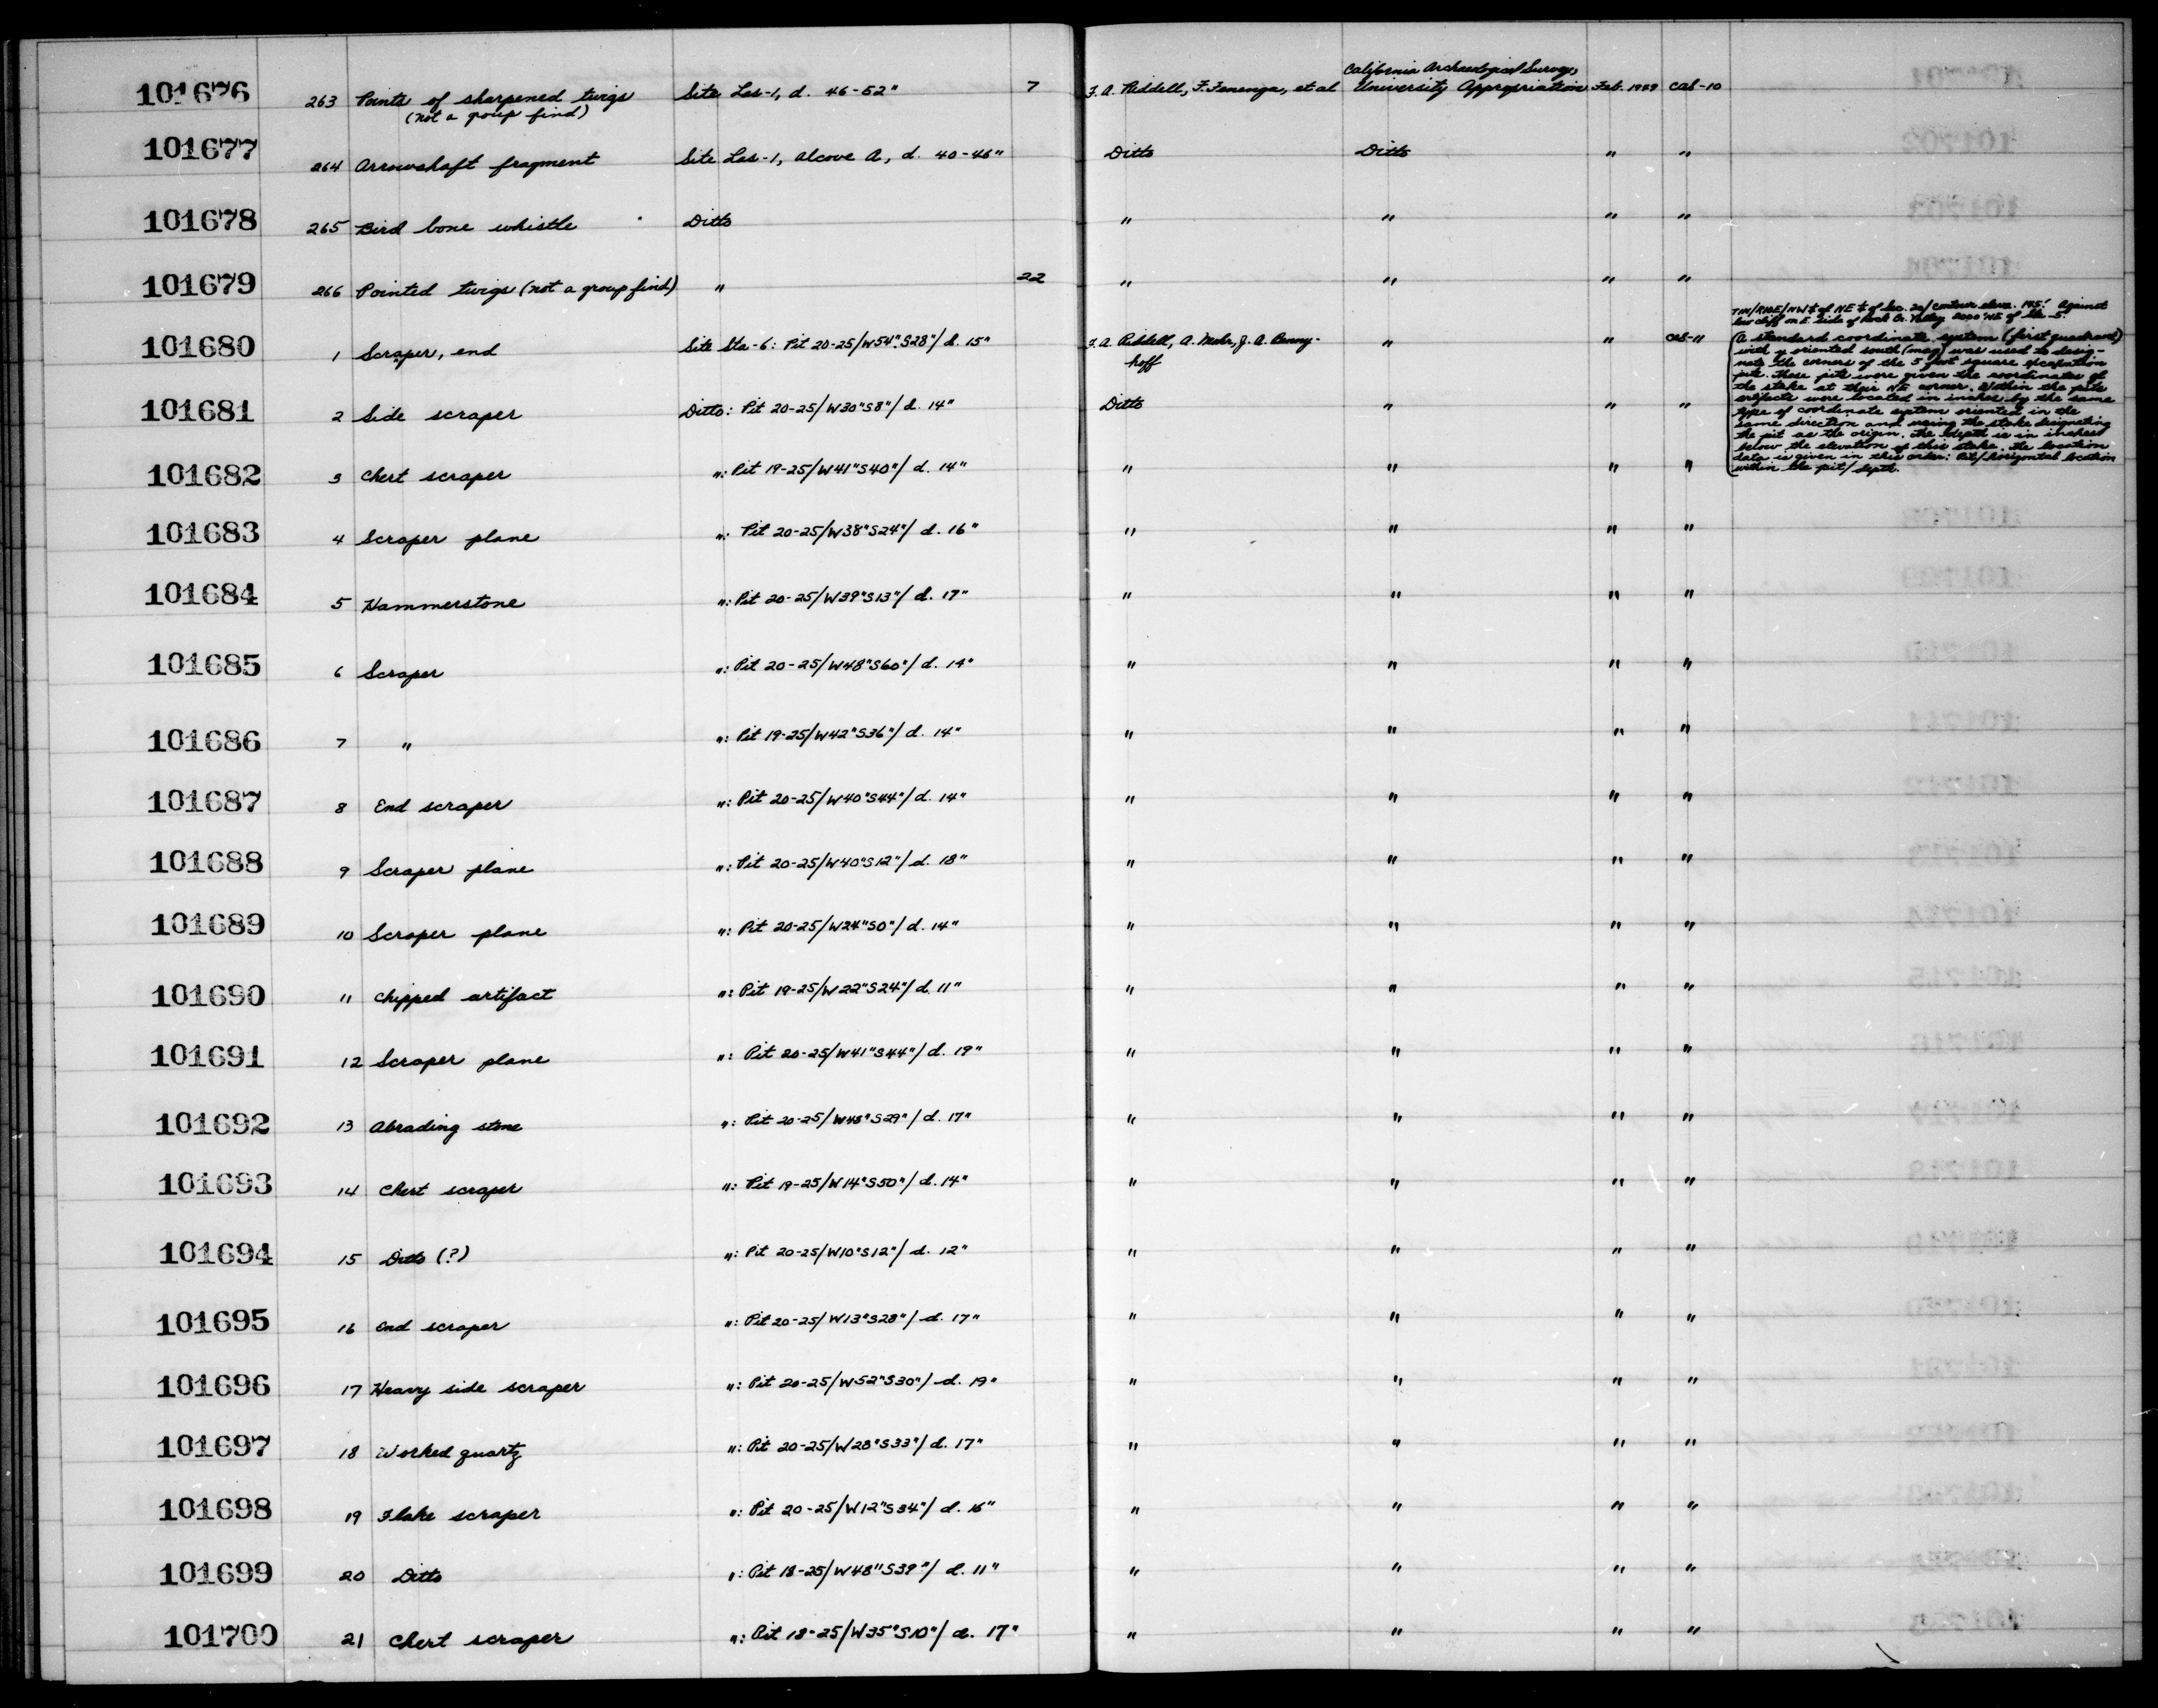 California Archaeological Survey,
101676 263 Points of sharpened twigs Site Las-1, d. 46-52" 7 F. A. Riddell, F. Fenenga, et al University Appropriation Feb. 1949 Cal-10
(not a group find)
101677 264 Arrowshaft fragment Site Las-1, Alcove A, d. 40-46" Ditto Ditto " "
101678 265 Bird bone whistle Ditto " " " "
101679 266 Pointed twigs (not a group find) " 22 " " " "
101680 1 Scraper, end Site Sta-6: Pit 20-25/W54"S28"/d. 15" F. A. Riddell, A. Mohr, J. A. Benny- " " Cal-11
hoff
101681 2 Side scraper Ditto: Pit 20-25/W30"S8"/d. 14" Ditto " " "
101682 3 Chert scraper ": Pit 19-25/W41"S40"/ d. 14" " " " "
101683 4 Scraper plane ": Pit 20-25/W38"S24"/ d. 16" " " " "
101684 5 Hammerstone ": Pit 20-25/W39"S13"/ d. 17" " " " "
101685 6 Scraper ": Pit 20-25/W48"S60"/ d. 14" " " " "
101686 7 " ": Pit 19-25/W42"S36"/ d. 14" " " " "
101687 8 End scraper ": Pit 20-25/W40"S44"/ d. 14" " " " "
101688 9 Scraper plane ": Pit 20-25/W40"S12"/ d. 18" " " " "
101689 10 Scraper plane ": Pit 20-25/W24"S0"/ d. 14" " " " "
101690 11 Chipped artifact ": Pit 19-25/W22"S24"/ d. 11" " " " "
101691 12 Scraper plane ": Pit 20-25/W41"S44"/ d. 19" " " " "
101692 13 Abrading stone ": Pit 20-25/W48"S29"/ d. 17" " " " "
101693 14 Chert scraper ": Pit 19-25/W14"S50"/ d. 14" " " " "
101694 15 Ditto (?) ": Pit 20-25/W10"S12"/ d. 12" " " " "
101695 16 End scraper ": Pit 20-25/W13"S28"/ d. 17" " " " "
101696 17 Heavy side scraper ": Pit 20-25/W52"S30"/ d. 19" " " " "
101697 18 Worked quartz ": Pit 20-25/W28"S33"/ d. 17" " " " "
101698 19 Flake scraper ": Pit 20-25/W12"S34"/ d. 16" " " " "
101699 20 Ditto ": Pit 18-25/W48"S39"/ d. 11" " " " "
101700 21 Chert scraper ": Pit 18-25/W35"S10"/ d. 17" " " " "
of NE ¼ of Sec. 20/contour elev. 145'. Against
low cliff on E. side of Rock Cr. Valley 2000' NE of Sta-5.
(A standard coordinate system (first quadrant)
with y oriented south (mag) was used to desig-
nate the corners of the 5 foot square excavation
pits. These pits were given the coordinates of
the stake at their NE corner. Within the pits
artifacts were located in inches by the same
type of coordinate system oriented in the
same direction and using the stake designating
the pit as the origin. The depth is in inches
below the elevation of this stake. The location
data is given in this order: Pit/horizontal location
within the pit/depth.